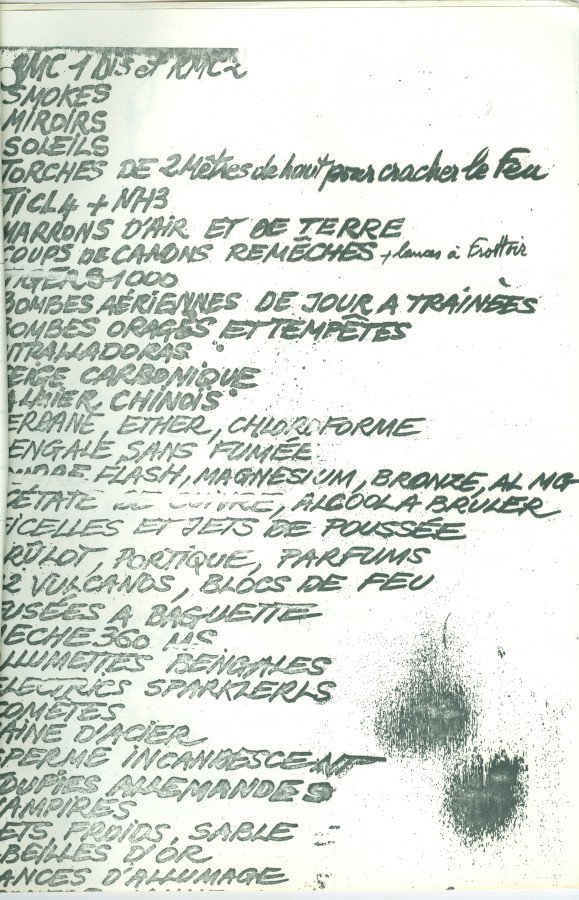 RMC 1 BIS et RMC2
SMOKES
MIROIRS
SOLEILS
TORCHES DE 2 Mètres de haut pour cracher le Feu
TICL4 + NH3
MARRONS D'AIR ET DE TERRE
COUPS DE CANONS REMÊCHES + lances à Frottoir
TIGERS 1000
BOMBES AÉRIENNES DE JOUR A TRAINÉES
BOMBES ORAGES ET TEMPÊTES
TRALLADORAS
EIGE CARBONIQUE
ALMIER CHINOIS
ETHER, CHLOROFORME
ENGALE SANS FUMÉE
FLASH, MAGNÉSIUM, BRONZE, AL MG
CÉTATE DE CUIVRE, ALCOOL A BRÛLER
FICELLES ET JETS DE POUSSÉE
RÛLOT, PORTIQUE, PARFUMS
2 VULCANOS, BLOCS DE FEU
FUSÉES A BAGUETTE
MECHE 360 MS
LLUMETTES BENGALES
ELECTRICS SPARKLERLS
COMÈTES
AINE D'ACIER
SPERME INCANDESCENT
TOUPIES ALLEMANDES
VAMPIRES
ETS FROIDS, SABLE
BEILLES D'OR
LANCES D'ALLUMAGE